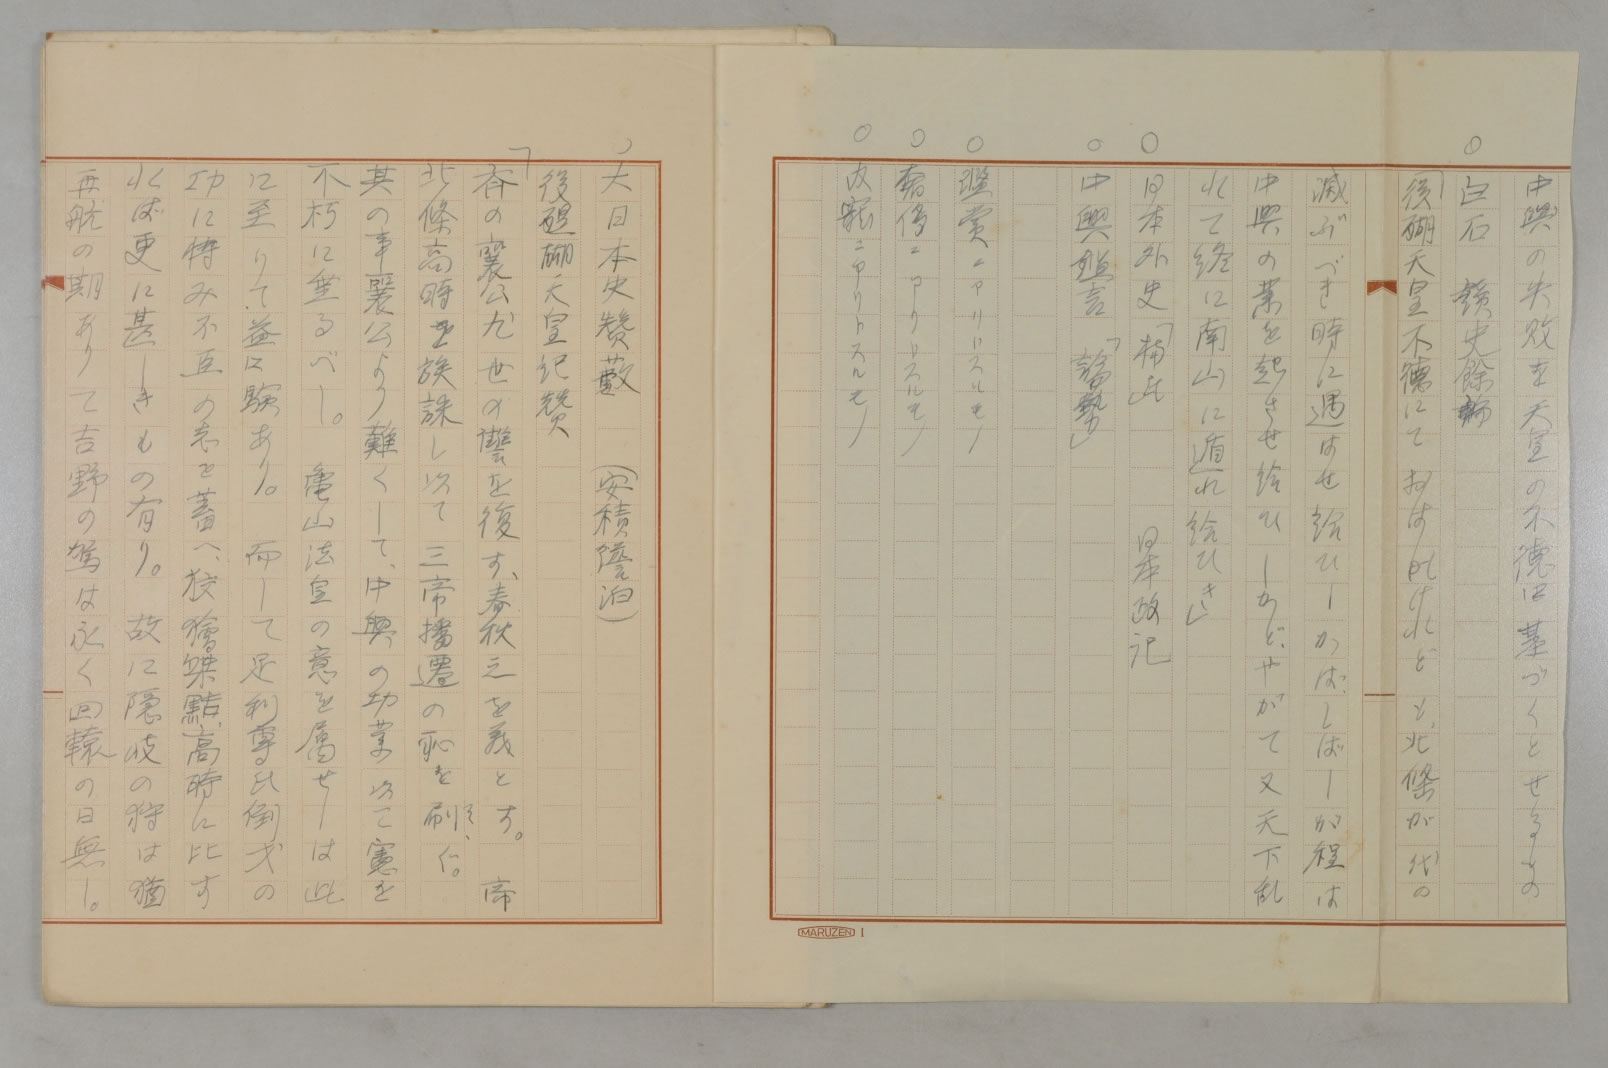 中興の失敗を天皇の不徳に基づくとせるもの
○白石 讀史餘論
「後醍醐天皇不徳にておはしけれども、北條が代の
滅ぶべき時に遇はせ給ひしかば、しばしが程は
中興の業を起させ給ひしかど、やがて又天下乱
れて終に南山に遁れ給ひき」
○日本外史「楠氏」 日本政記
○中興鑑言「論勢」
濫賞ニアリトスルモノ
○奢侈ニアリトスルモノ
○内嬖ニアリトスルモノ
○大日本史賛藪 (安積澹泊)
後醍醐天皇紀賛
「斉の襄公九世の讐を復す、春秋之を義とす。 帝
北條高時を族誅し以て三帝播遷の恥を刷ぐ。
其の事襄公より難くして、中興の功業以て憲を
不朽に垂るべし。 亀山法皇の意を属せしは此
に至りて益に驗あり。 而して足利尊氏倒戈の
功に恃み不臣の志を蓄へ、狡獪桀黠、高時に比す
れば更に甚しきもの有り。 故に隠岐の狩は猶
再航の期ありて吉野の駕は永く回轅の日無し。
MARUZEN 1